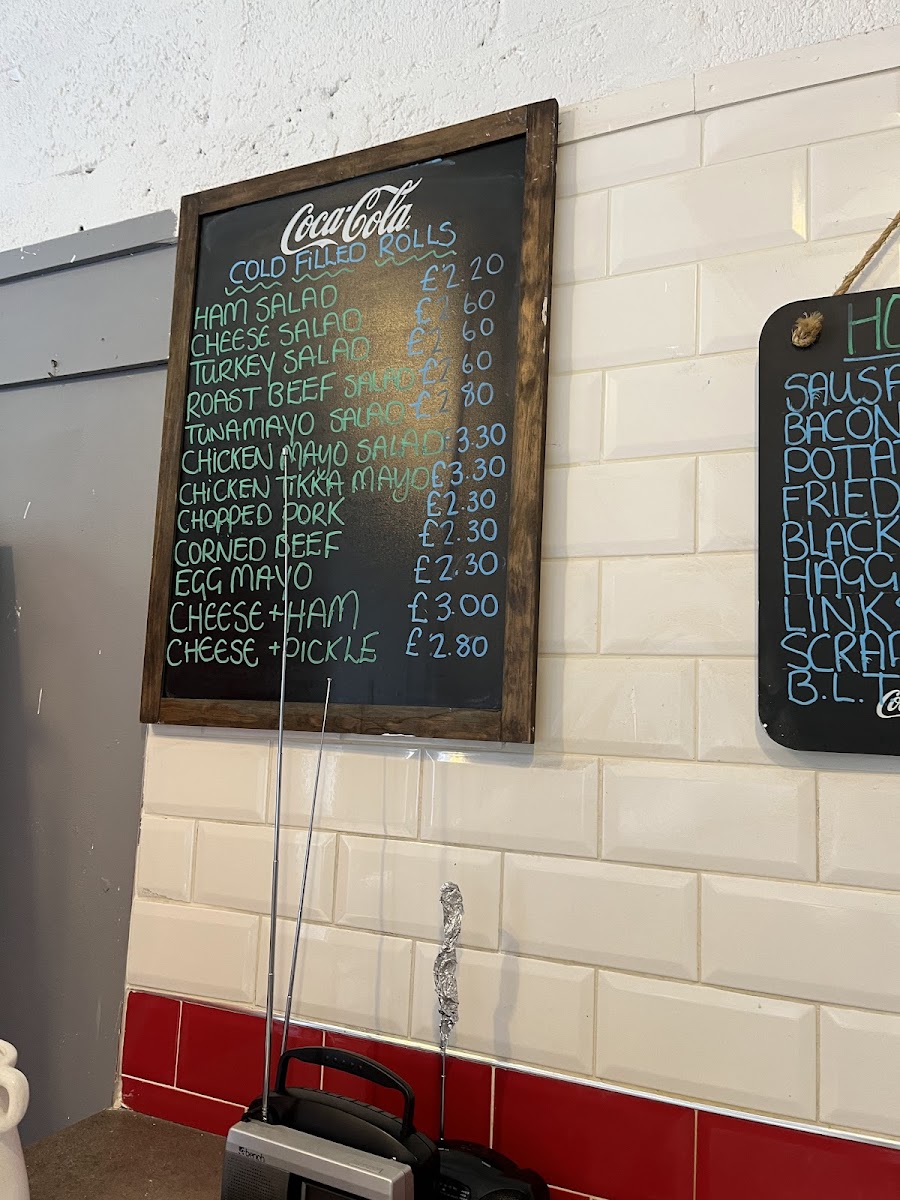 Coca-Cola
COLD FILLED ROLLS
HAM SALAD £2.20
CHEESE SALAD £2.60
TURKEY SALAD £2.60
ROAST BEEF SALAD £2.60
TUNAMAYO SALAD £2.80
CHICKEN MAYO SALAD £3.30
CHICKEN TIKKA MAYO £3.30
CHOPPED PORK £2.30
CORNED BEEF £2.30
EGG MAYO £2.30
CHEESE + HAM £3.00
CHEESE + PICKLE £2.80
HO
SAUSA
BACON
POTAT
FRIED
BLACK
HAGG
LINK
SCRA
B.L.T
Co